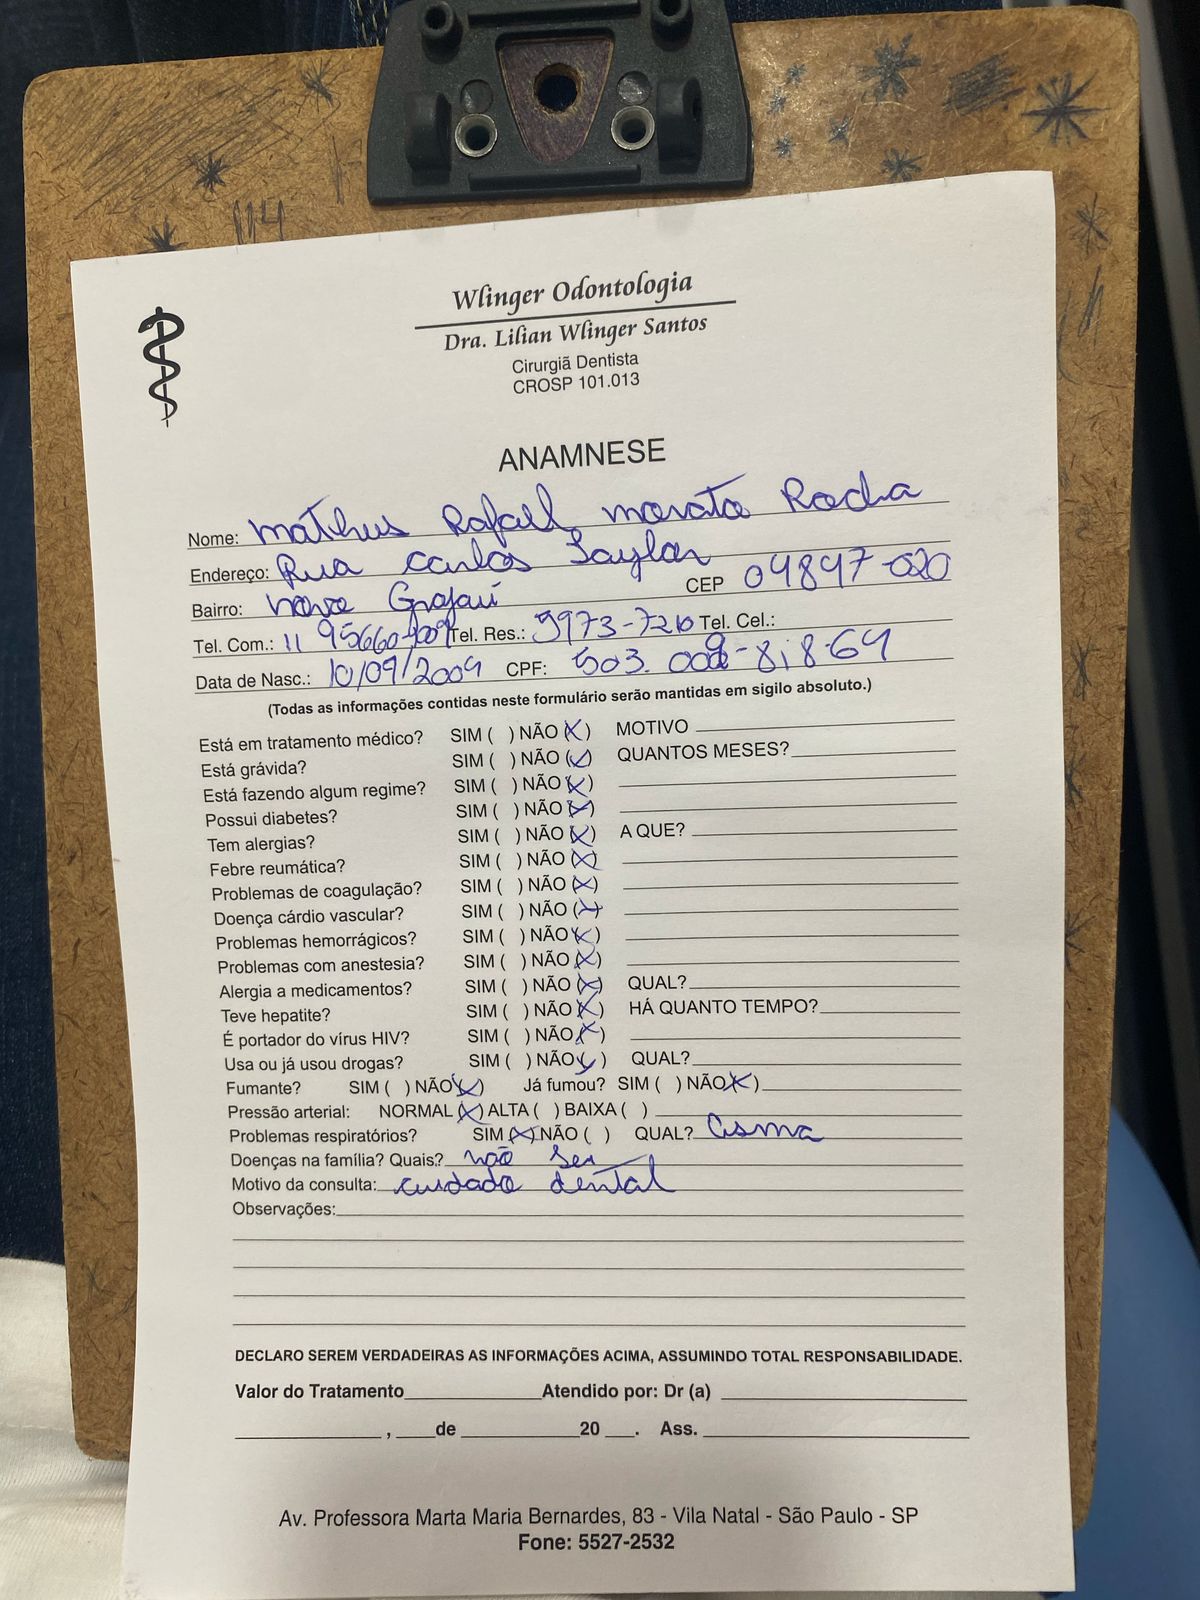 Wlinger Odontologia
Dra. Lilian Wlinger Santos
Cirurgiã Dentista
CROSP 101.013
ANAMNESE
Nome: Matheus Rafael Morato Rocha
Endereço: Rua Carlos Saylor
Bairro: novo Grajaú CEP 04847-020
Tel. Com.: 11 95660- Tel. Res.: 5973-7210 Tel. Cel.:
Data de Nasc.: 10/09/2009 CPF: 503. 818-64
(Todas as informações contidas neste formulário serão mantidas em sigilo absoluto.)
Está em tratamento médico? SIM ( ) NÃO (X) MOTIVO
Está grávida? SIM ( ) NÃO (X) QUANTOS MESES?
Está fazendo algum regime? SIM ( ) NÃO (X)
Possui diabetes? SIM ( ) NÃO (X)
Tem alergias? SIM ( ) NÃO (X) A QUE?
Febre reumática? SIM ( ) NÃO (X)
Problemas de coagulação? SIM ( ) NÃO (X)
Doença cárdio vascular? SIM ( ) NÃO (X)
Problemas hemorrágicos? SIM ( ) NÃO (X)
Problemas com anestesia? SIM ( ) NÃO (X)
Alergia a medicamentos? SIM ( ) NÃO (X) QUAL?
Teve hepatite? SIM ( ) NÃO (X) HÁ QUANTO TEMPO?
É portador do vírus HIV? SIM ( ) NÃO (X)
Usa ou já usou drogas? SIM ( ) NÃO (X) QUAL?
Fumante? SIM ( ) NÃO (X) Já fumou? SIM ( ) NÃO (X)
Pressão arterial: NORMAL (X) ALTA ( ) BAIXA ( )
Problemas respiratórios? SIM (X) NÃO ( ) QUAL? Asma
Doenças na família? Quais? não sei
Motivo da consulta: cuidado dental
Observações:
DECLARO SEREM VERDADEIRAS AS INFORMAÇÕES ACIMA, ASSUMINDO TOTAL RESPONSABILIDADE.
Valor do Tratamento Atendido por: Dr (a)
, de 20 . Ass.
Av. Professora Marta Maria Bernardes, 83 - Vila Natal - São Paulo - SP
Fone: 5527-2532